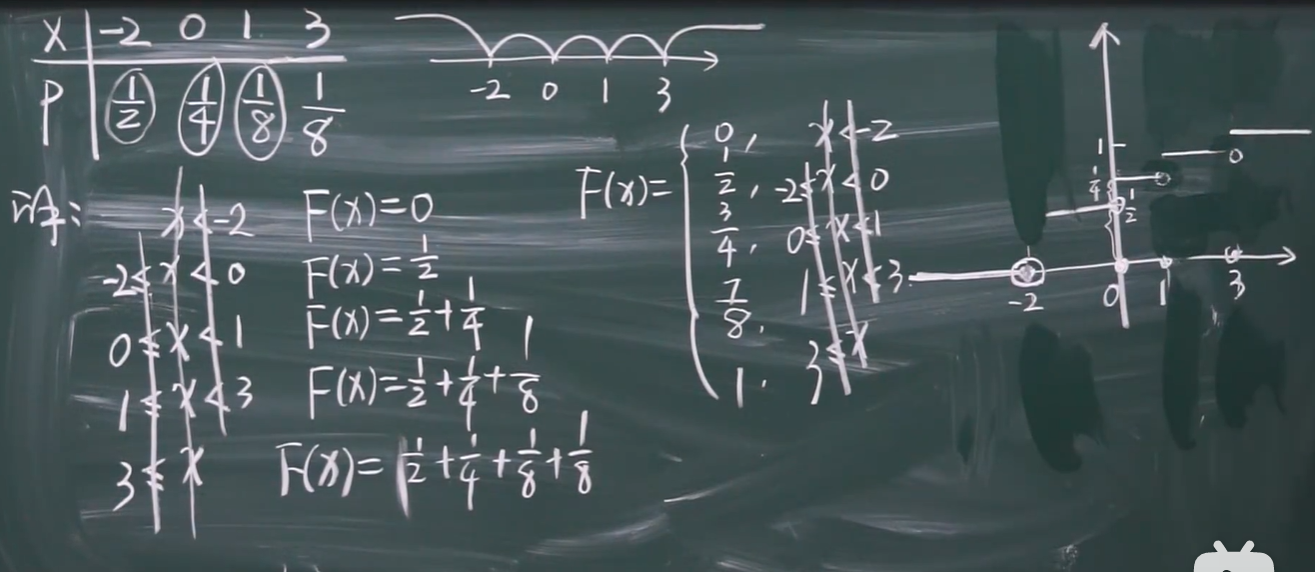 X -2 0 1 3
P 1/2 1/4 1/8 1/8
-2 0 1 3
x<-2 F(x)=0
-2≤x<0 F(x)=1/2
0≤x<1 F(x)=1/2+1/4
1≤x<3 F(x)=1/2+1/4+1/8
3≤x F(x)=1/2+1/4+1/8+1/8
F(x)={
0, x<-2
1/2, -2≤x<0
3/4, 0≤x<1
1≤x<3
7/8,
1. 3≤x
1
1/4
1/2
-2 0 1 3